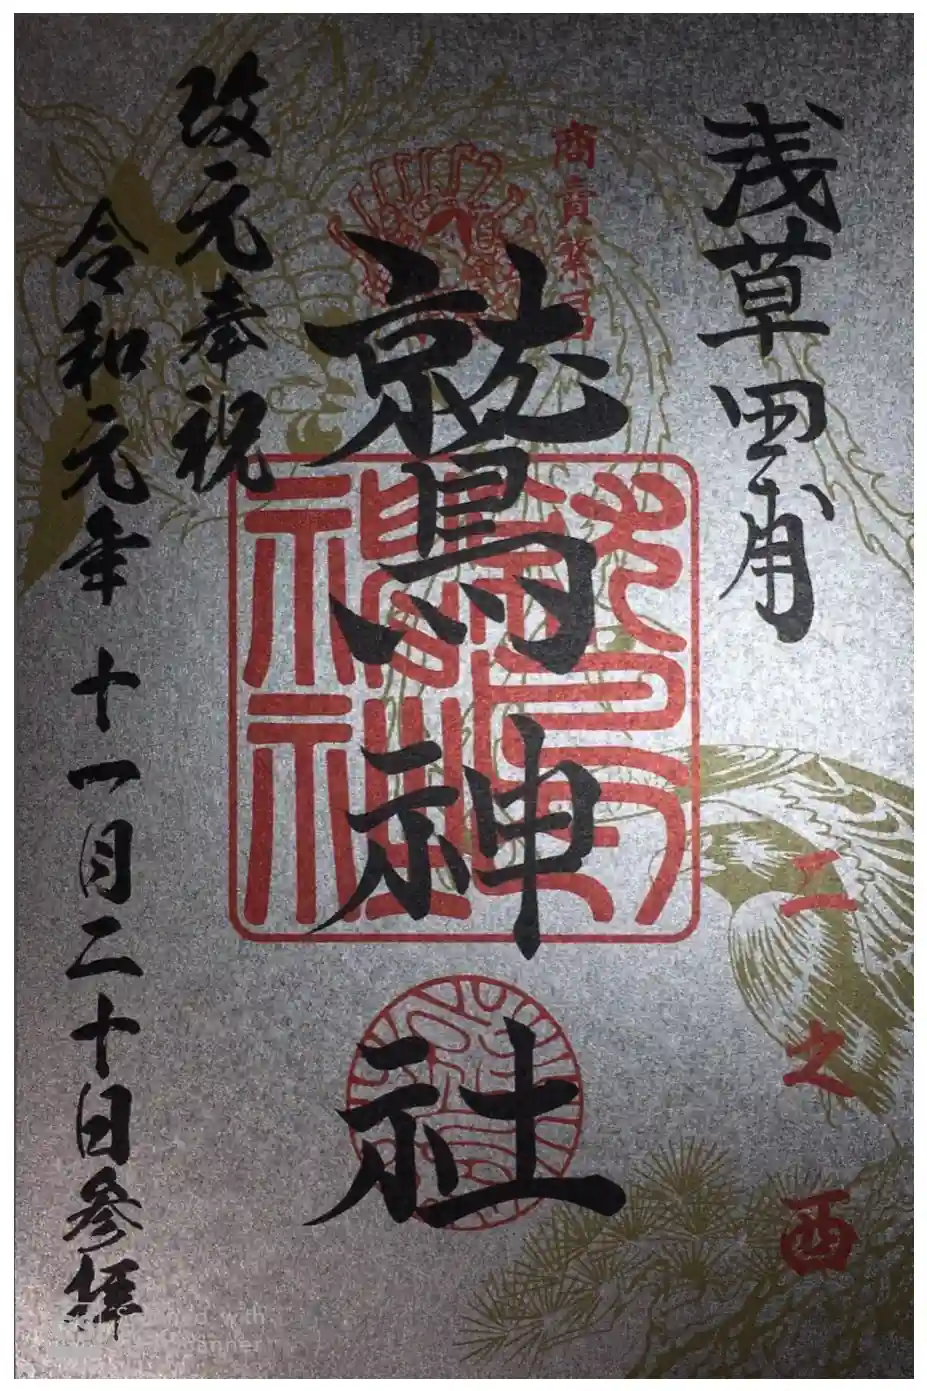 浅草田甫
二之酉
商賣繁昌
鷲神社
鷲神社
改元奉祝
令和元年十一月二十日参拝